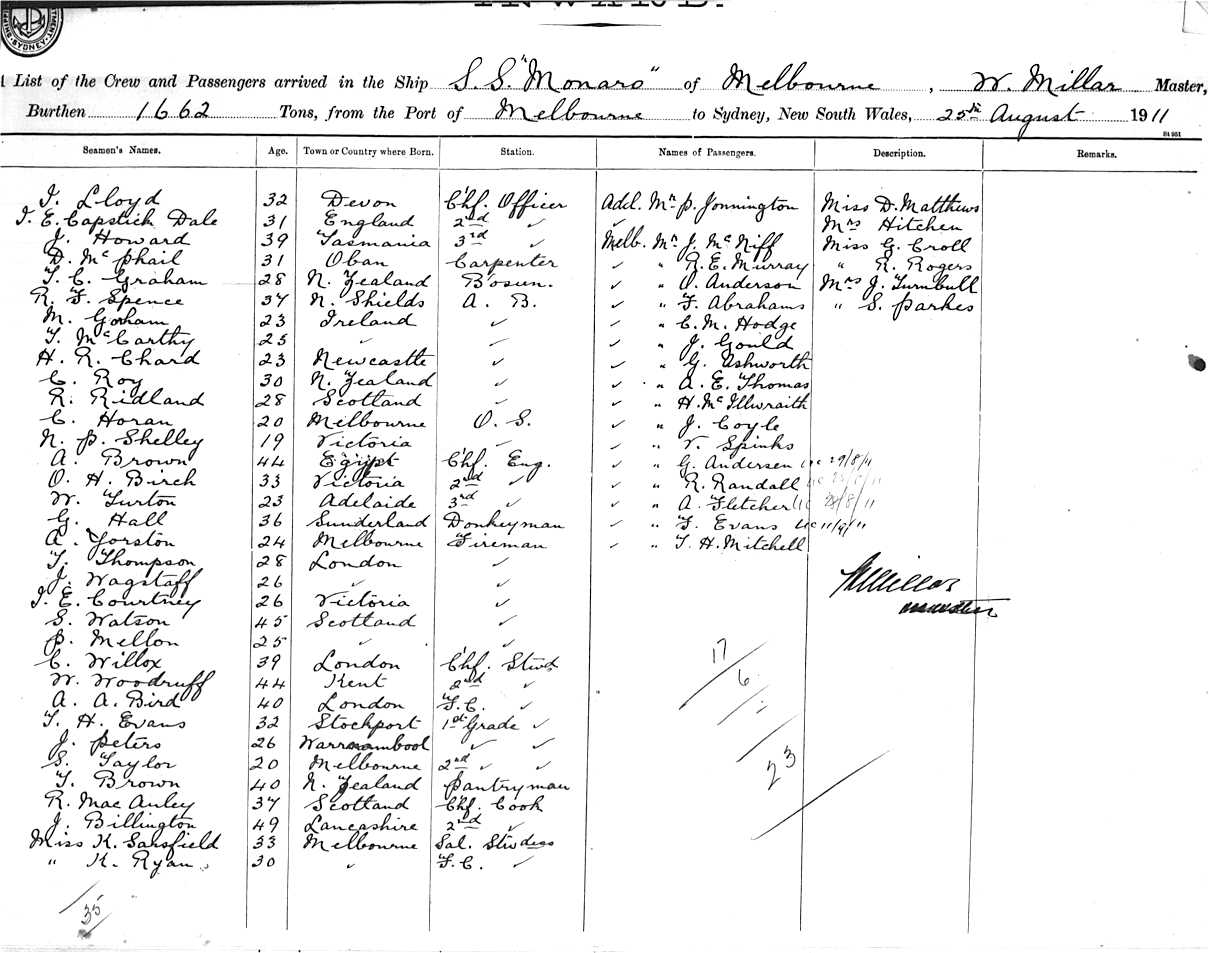 INWARD.
SYDNEY
List of the Crew and Passengers arrived in the Ship S.S. "Monaro" of Melbourne, W. Millar Master,
Burthen 1662 Tons, from the Port of Melbourne to Sydney, New South Wales, 25th August 1911
Seamen's Names. Age. Town or Country where Born. Station. Names of Passengers. Description. Remarks.
I. Lloyd 32 Devon Chf. Officer Adel. Mr P. Jonnington Miss D. Matthews
I. E. Capstick Dale 31 England 2nd ✓ ✓ Mrs Hitchen
J. Howard 39 Tasmania 3rd ✓ Melb. Mr J. McNiff Miss G. Croll
D. McPhail 31 Oban Carpenter ✓ " R. E. Murray " R. Rogers
T. C. Graham 28 N. Zealand Bosun. ✓ " O. Anderson Mrs J. Turnbull
R. F. Spence 37 N. Shields A. B. ✓ " F. Abrahams " S. Parkes
M. Gorham 23 Ireland ✓ ✓ " C. M. Hodge
T. McCarthy 25 ✓ ✓ ✓ " J. Gould
H. R. Chard 23 Newcastle ✓ ✓ " G. Ashworth
C. Roy 30 N. Zealand ✓ ✓ " A. E. Thomas
R. Ridland 28 Scotland ✓ ✓ " H. McIllwraith
C. Horan 20 Melbourne O. S. ✓ " J. Coyle
N. P. Shelley 19 Victoria ✓ ✓ " V. Spinks
A. Brown 44 Egipt Chf. Eng. ✓ " G. Andersen 29/8/11
O. H. Birch 33 Victoria 2nd ✓ ✓ " R. Randall
W. Turton 23 Adelaide 3rd ✓ ✓ " A. Fletcher
G. Hall 36 Sunderland Donkeyman ✓ " F. Evans 11/9/11
A. Yorston 24 Melbourne Fireman ✓ " T. H. Mitchell
T. Thompson 28 London ✓
J. Wagstaff 26 ✓ ✓
I. E. Courtney 26 Victoria ✓
S. Watson 45 Scotland ✓
P. Mellon 25 ✓ ✓
C. Willox 39 London Chf. Stwd
W. Woodruff 44 Kent 2nd ✓
A. A. Bird 40 London F.C. ✓
T. H. Evans 32 Stockport 1st Grade ✓
J. Peters 26 Warrnambool ✓ ✓
S. Taylor 20 Melbourne 2nd ✓ ✓
T. Brown 40 N. Zealand Pantryman
R. MacAuley 37 Scotland Chf. Cook
J. Billington 49 Lancashire 2nd ✓
Miss K. Sarsfield 33 Melbourne Sal. Stwdess
" K. Ryan 30 ✓ F.C. ✓
WMillar
master
17
6
23
35